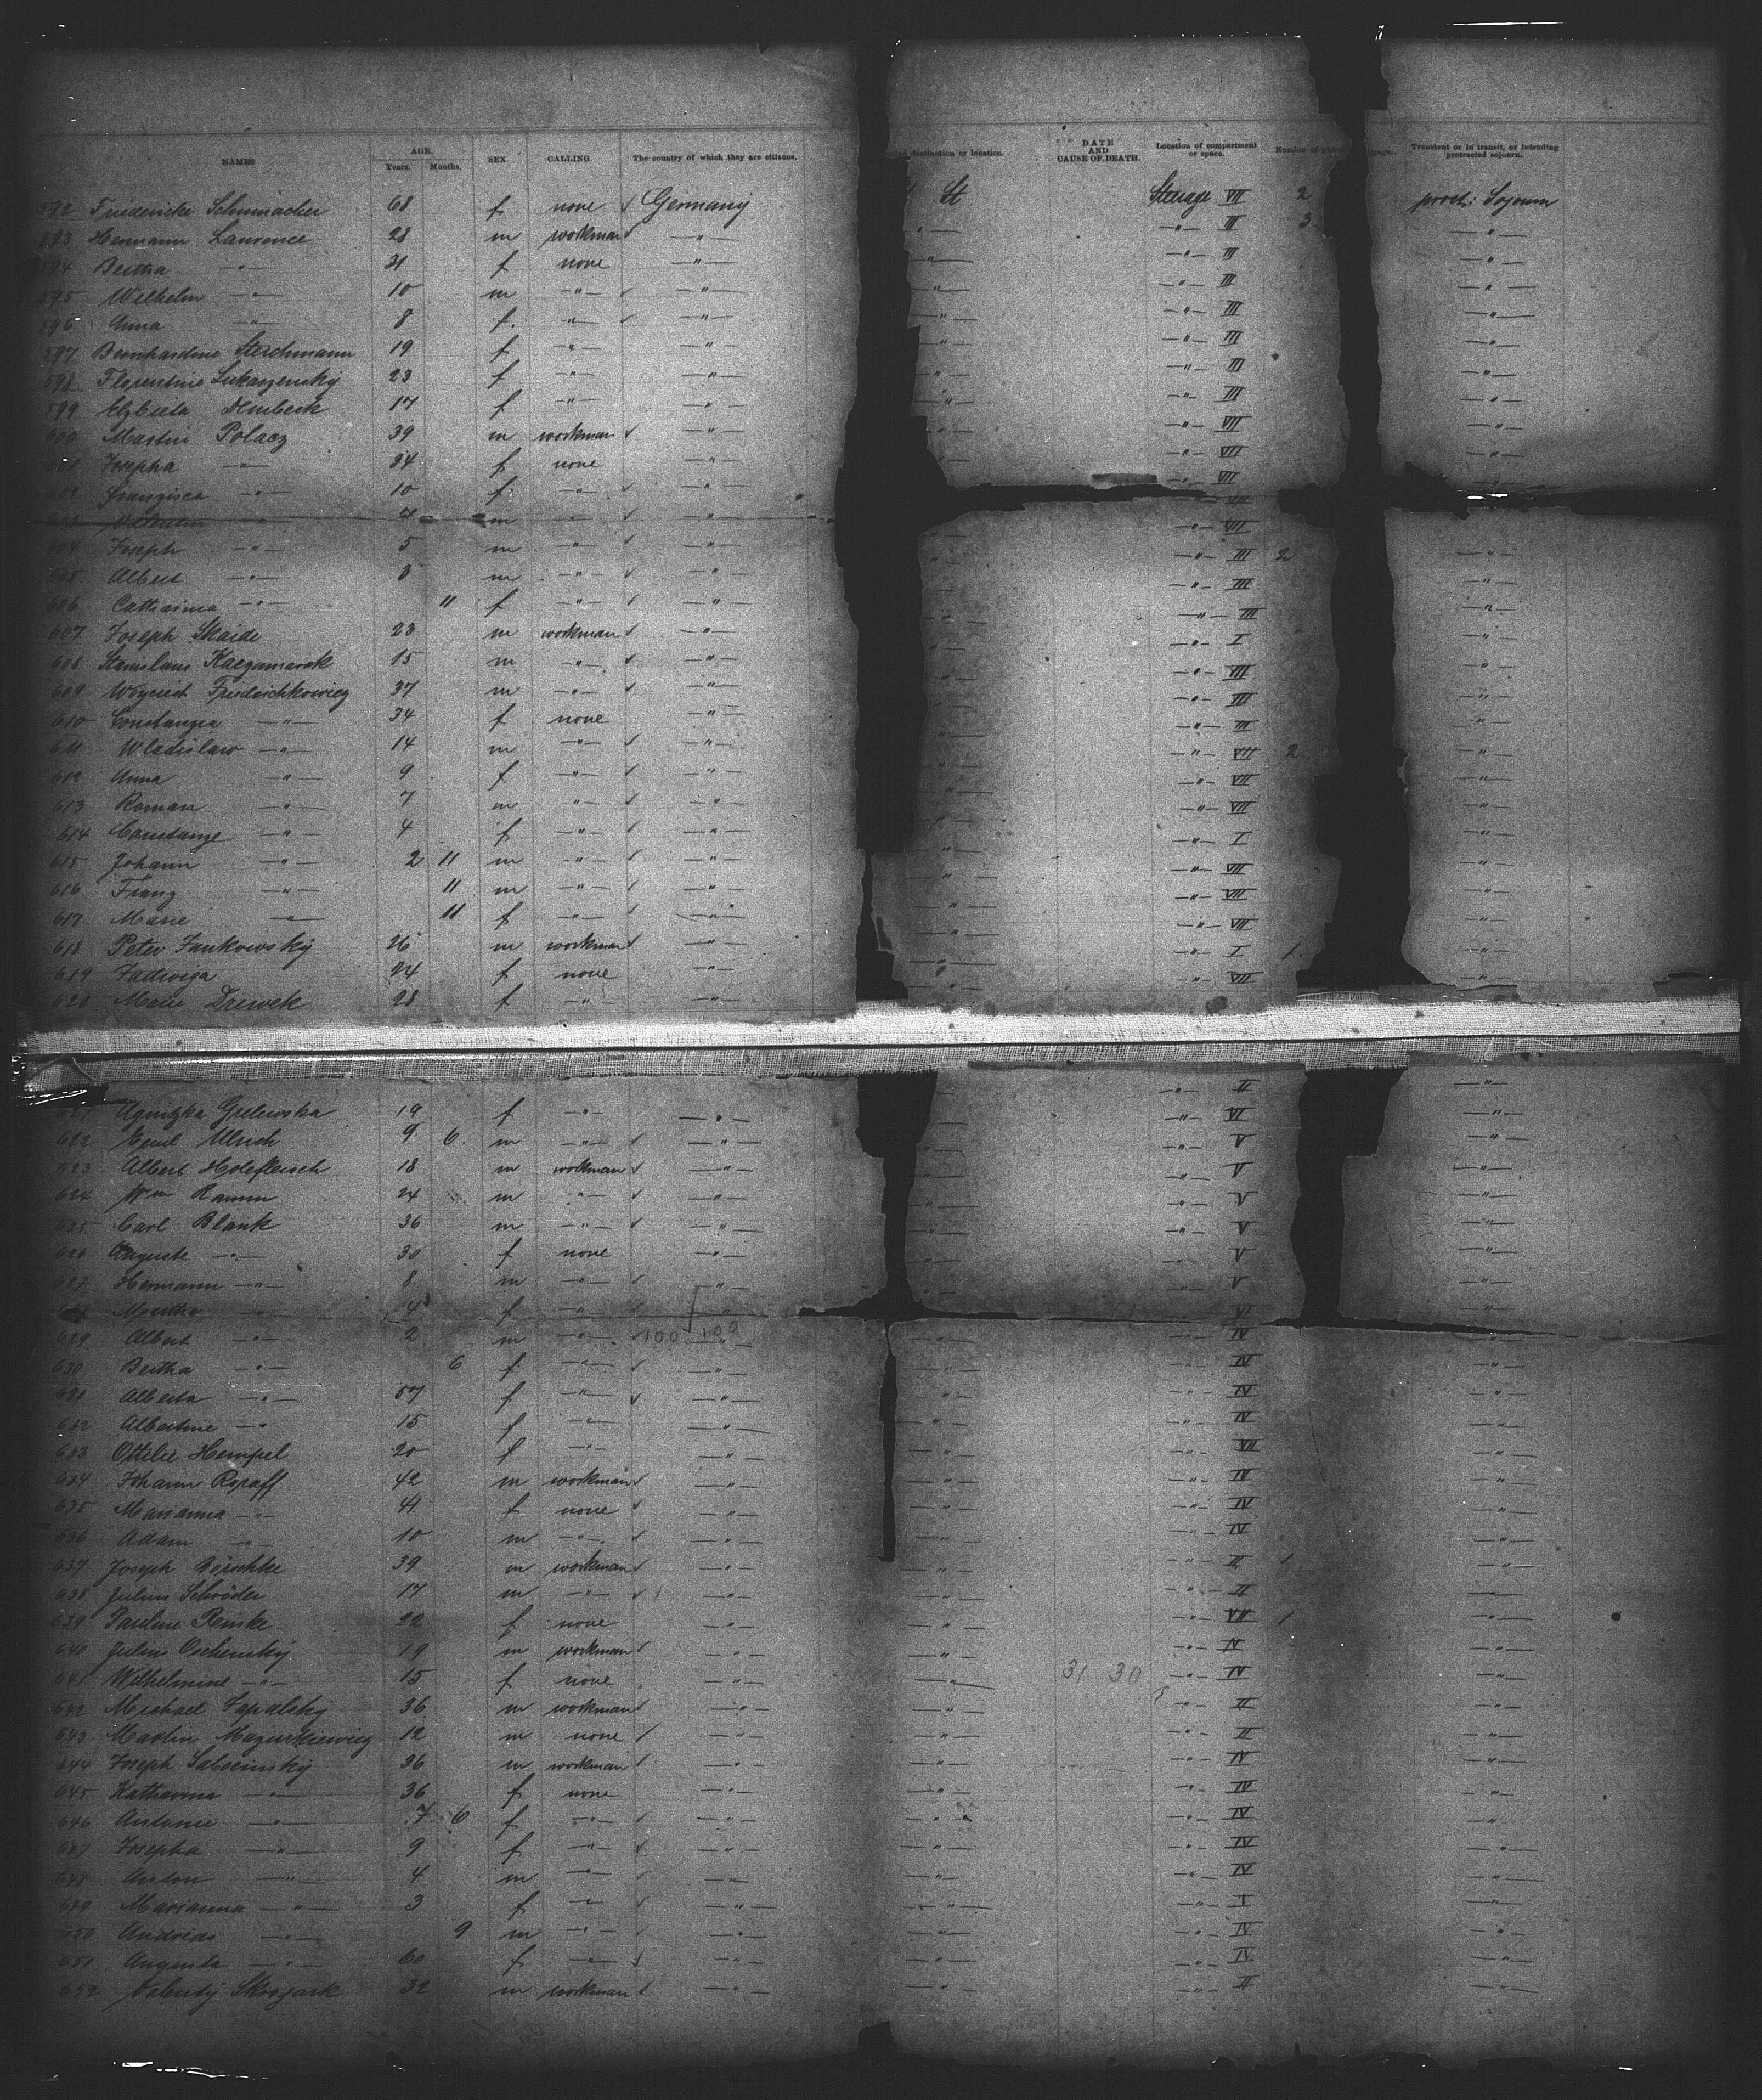 NAMES AGE. Years. Months. SEX. CALLING. The country of which they are citizens. destination or location. DATE AND CAUSE OF DEATH. Location of compartment or space. Number of Transient or in transit, or intending protracted sojourn.
592 Friedericke Schumacher 68 f none Germany St Steerage VII 2 protr: Sojourn
593 Hermann Laurence 28 m workman —"— —"— —"— III 3 —"—
594 Bertha —"— 31 f none —"— —"— —"— III —"—
595 Wilhelm —"— 10 m —"— —"— —"— —"— III —"—
596 Anna —"— 8 f. —"— —"— —"— —"— III —"—
597 Bernhardine Sterchmann 19 f —"— —"— —"— —"— III —"—
598 Florentine Lukaszensky 23 f —"— —"— —"— —"— III —"—
599 Elzbieta Dembeck 17 f —"— —"— —"— —"— III —"—
600 Martin Polacz 39 m workman —"— —"— —"— VII —"—
601 Josepha —"— 34 f none —"— —"— —"— VII —"—
602 Franzisca —"— 10 f —"— —"— —"— —"— VII —"—
603 —"— 7 m —"— —"— VII
604 Joseph —"— 5 m —"— —"— —"— —"— VII
605 Albert —"— 3 m —"— —"— —"— III 2 —"—
606 Catharina —"— 11 f —"— —"— —"— III —"—
607 Joseph Skaide 23 m workman —"— —"— —"— III —"—
608 Stanislaus Kaczmarek 15 m —"— —"— —"— —"— I —"—
609 Woyciech Friedrichkowicz 37 m —"— —"— —"— —"— VII —"—
610 Constanzia —"— 34 f none —"— —"— —"— III —"—
611 Wladislaw —"— 14 m —"— —"— —"— —"— III —"—
612 Anna —"— 9 f —"— —"— —"— —"— VII 2 —"—
613 Roman —"— 7 m —"— —"— —"— —"— VII —"—
614 Constanze —"— 4 f —"— —"— —"— —"— VII —"—
615 Johann —"— 2 11 m —"— —"— —"— —"— I —"—
616 Franz —"— 11 m —"— —"— —"— —"— VII —"—
617 Marie —"— 11 f —"— —"— —"— —"— VII —"—
618 Peter Jankowsky 26 m workman —"— —"— —"— VII —"—
619 Jadwiga 24 f none —"— —"— —"— I 1 —"—
620 Marie Drewek 28 f —"— —"— —"— —"— VII —"—
621 Agnizka Grelewska 19 f —"— —"— —"— II —"—
622 Emil Ulrich 9 6 m —"— —"— —"— —"— VI —"—
623 Albert Holefleisch 18 m workman —"— —"— —"— V —"—
624 Wm Ramm 24 m —"— —"— —"— —"— V —"—
625 Carl Blank 36 m —"— —"— —"— —"— V —"—
626 Auguste —"— 30 f none —"— —"— —"— V —"—
627 Hermann —"— 8 m —"— —"— —"— —"— V —"—
628 Martha —"— 4 f —"— —"— —"— V —"—
629 Albert —"— 2 m —"— 100 100 —"— —"— IV
630 Bertha —"— 6 f —"— —"— —"— —"— IV —"—
631 Alberta —"— 57 f —"— —"— —"— —"— IV —"—
632 Albertine —"— 15 f —"— —"— —"— —"— IV —"—
633 Ottilie Hempel 20 f —"— —"— —"— —"— VII —"—
634 Johann Ropaff 42 m workman —"— —"— —"— IV —"—
635 Marianna —"— 41 f none —"— —"— —"— IV —"—
636 Adam —"— 10 m —"— —"— —"— —"— IV —"—
637 Joseph 39 m workman —"— —"— —"— II 1 —"—
638 Julius Schröder 17 m —"— —"— —"— —"— II —"—
639 Pauline Reinke 22 f none —"— —"— —"— VII 1 —"—
640 Julius Oschensky 19 m workman —"— —"— —"— IV —"—
641 Wilhelmine —"— 15 f none —"— —"— 31 30 —"— IV —"—
642 Michael Zapalsky 36 m workman —"— —"— —"— II —"—
643 Martin Mazurkiewicz 12 m none —"— —"— —"— II —"—
644 Joseph Saboćinsky 36 m workman —"— —"— —"— IV —"—
645 Katharina —"— 36 f none —"— —"— —"— IV —"—
646 Antonie —"— 7 6 f —"— —"— —"— —"— IV —"—
647 Josepha —"— 9 f —"— —"— —"— —"— IV —"—
648 Anton —"— 4 m —"— —"— —"— —"— IV —"—
649 Marianna —"— 3 f —"— —"— —"— —"— I —"—
650 Andreas —"— 9 m —"— —"— —"— —"— IV —"—
651 Augusta —"— 60 f —"— —"— —"— —"— IV —"—
652 32 m workman —"— —"— —"— II —"—